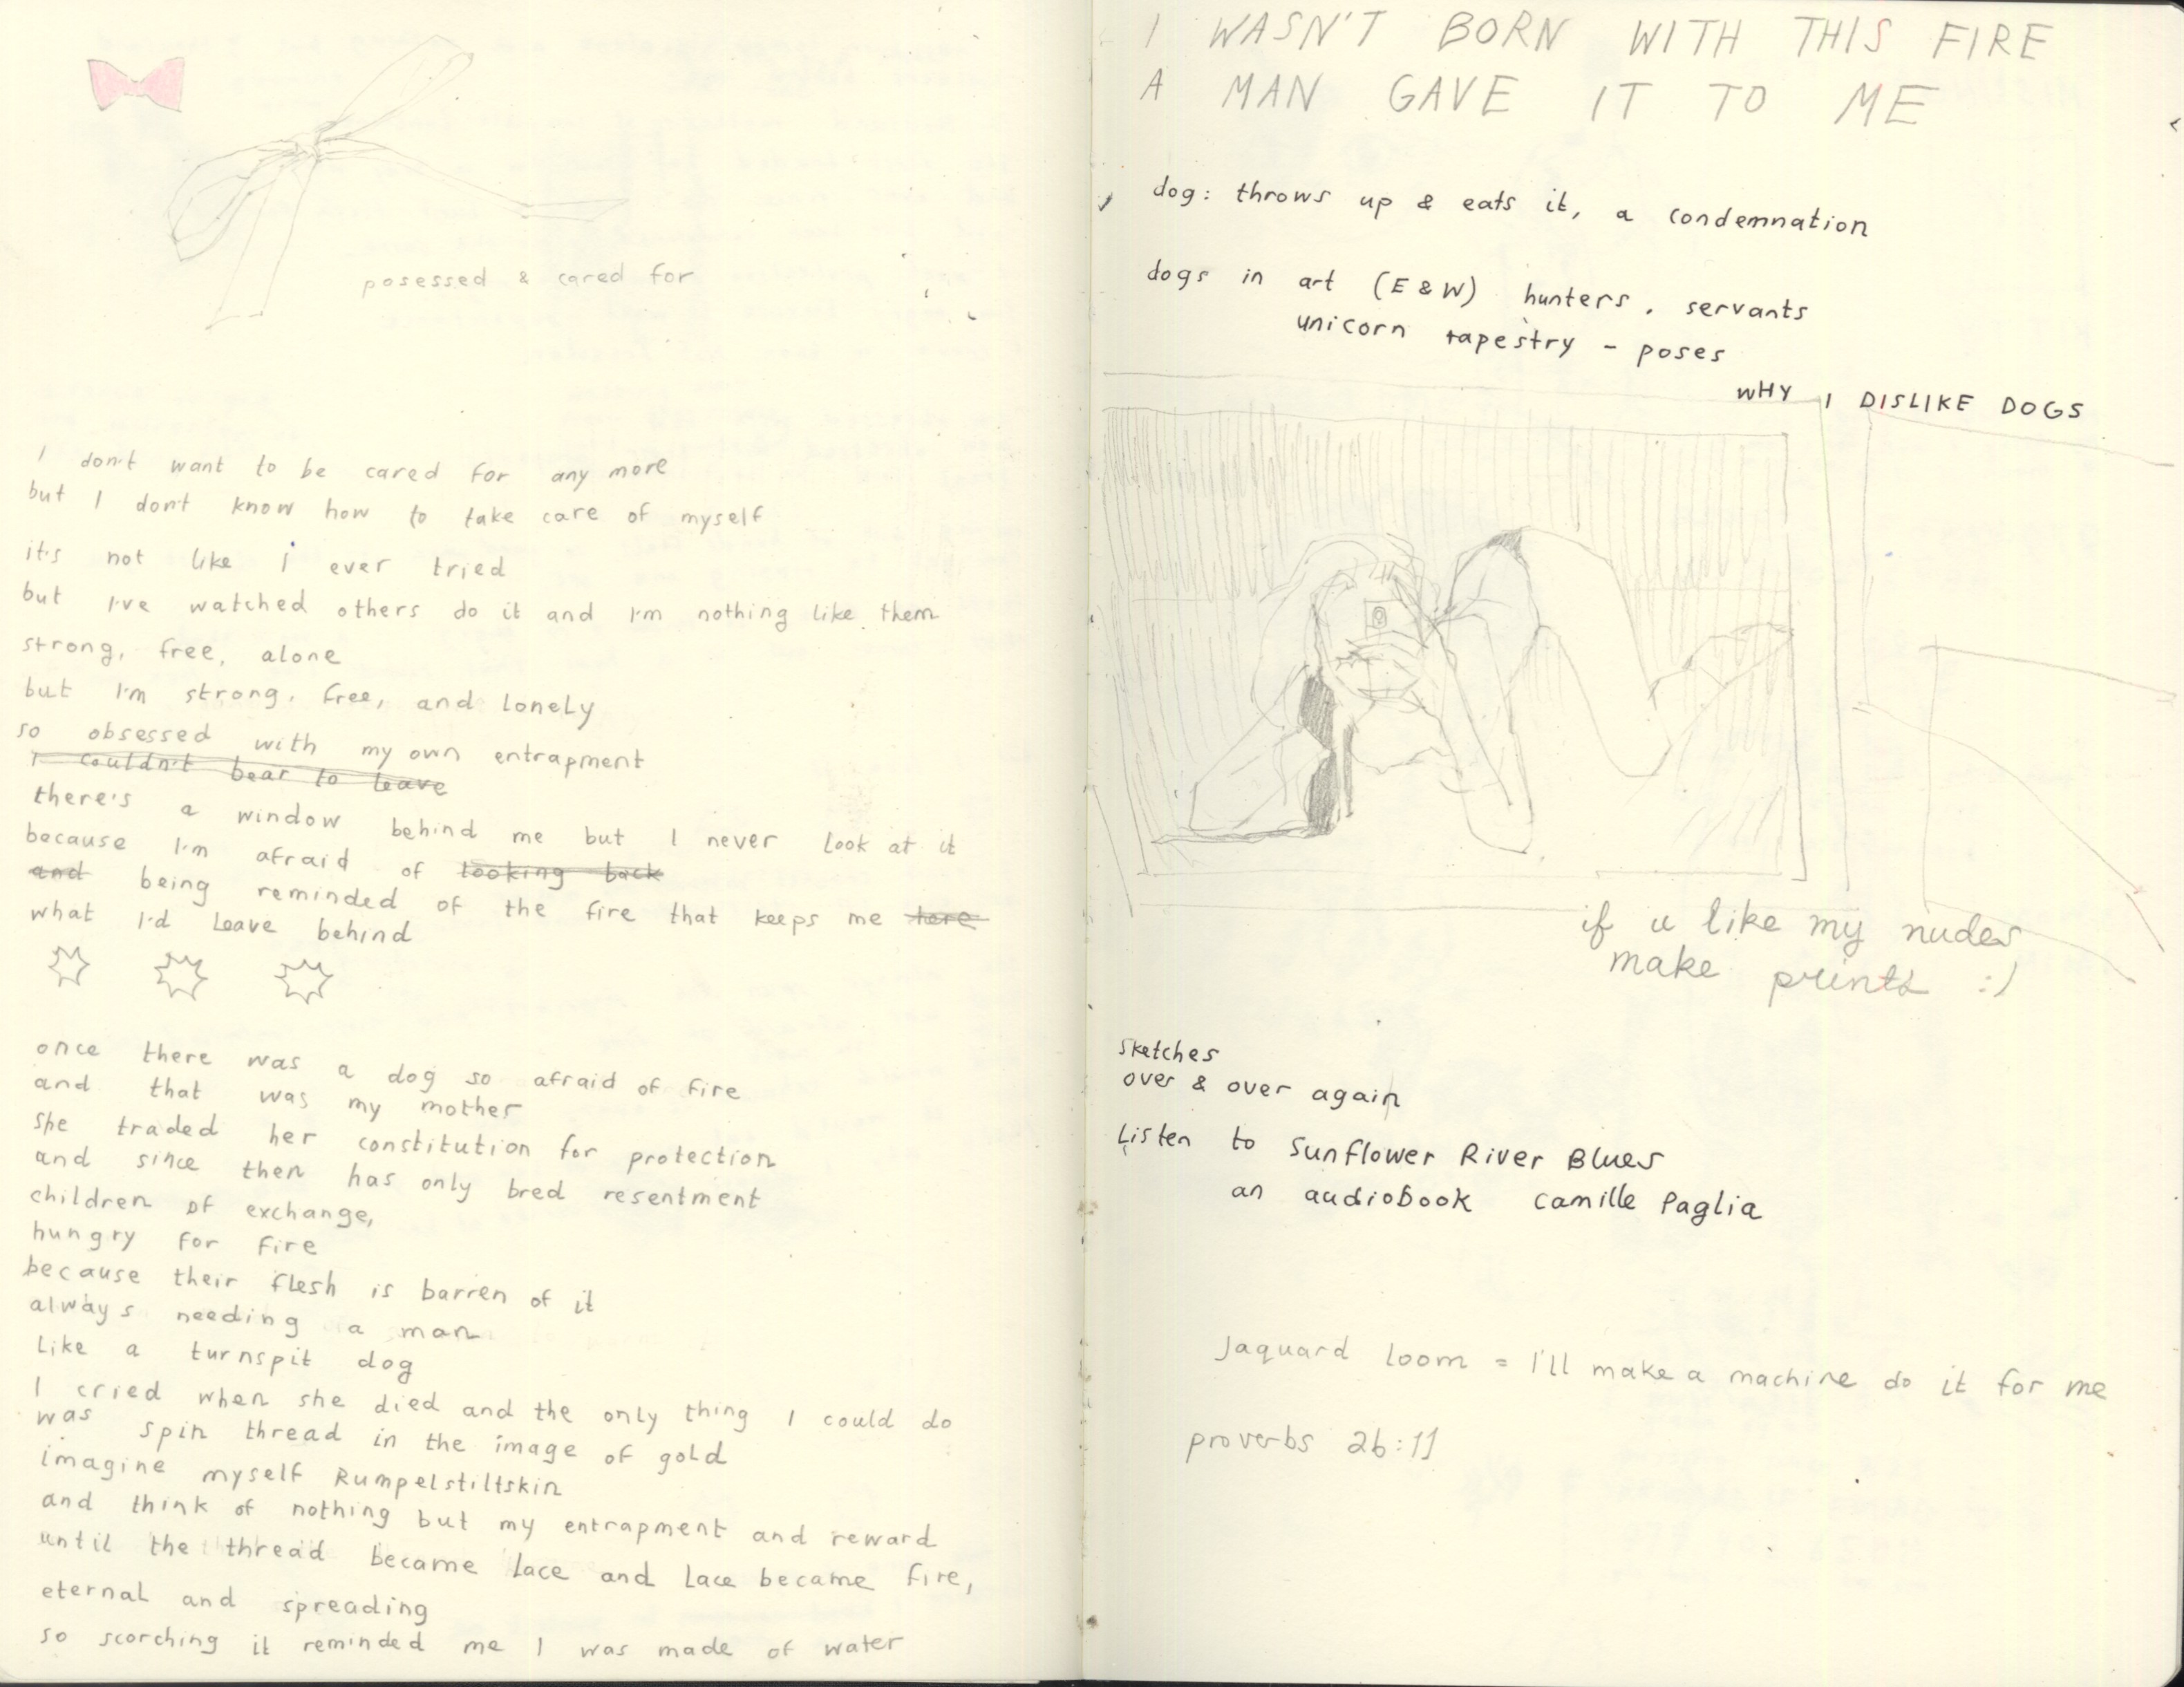 posessed & cared for
I don't want to be cared for any more
but I don't know how to take care of myself
it's not like i ever tried
but I've watched others do it and I'm nothing like them
strong, free, alone
but I'm strong, free, and lonely
so obsessed with my own entrapment
I couldn't bear to leave
there's a window behind me but I never look at it
because I'm afraid of looking back
and being reminded of the fire that keeps me here
what I'd leave behind
once there was a dog so afraid of fire
and that was my mother
she traded her constitution for protection
and since then has only bred resentment
children of exchange,
hungry for fire
because their flesh is barren of it
always needing a man
like a turnspit dog
I cried when she died and the only thing I could do
was spin thread in the image of gold
imagine myself Rumpelstiltskin
and think of nothing but my entrapment and reward
until the thread became lace and lace became fire,
eternal and spreading
so scorching it reminded me I was made of water
I WASN'T BORN WITH THIS FIRE
A MAN GAVE IT TO ME
dog: throws up & eats it, a condemnation
dogs in art (E & W) hunters, servants
unicorn tapestry - poses
WHY I DISLIKE DOGS
if u like my nudes
make prints :)
sketches
over & over again
Listen to Sunflower River Blues
an audiobook Camille Paglia
Jaquard loom = I'll make a machine do it for me
proverbs 26:11